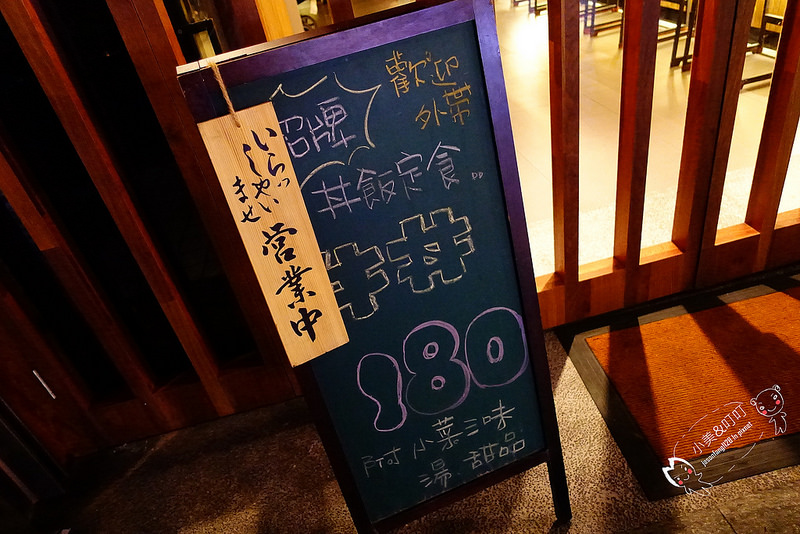 歡迎
外帶
招牌
丼飯定食
いらっ
しゃい
ませ
営業中
丼丼
180
附小菜三味
湯 甜品
小美&叮叮